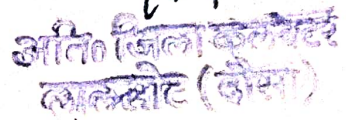 अति० जिला कलेक्टर
लालसोट (दौसा)